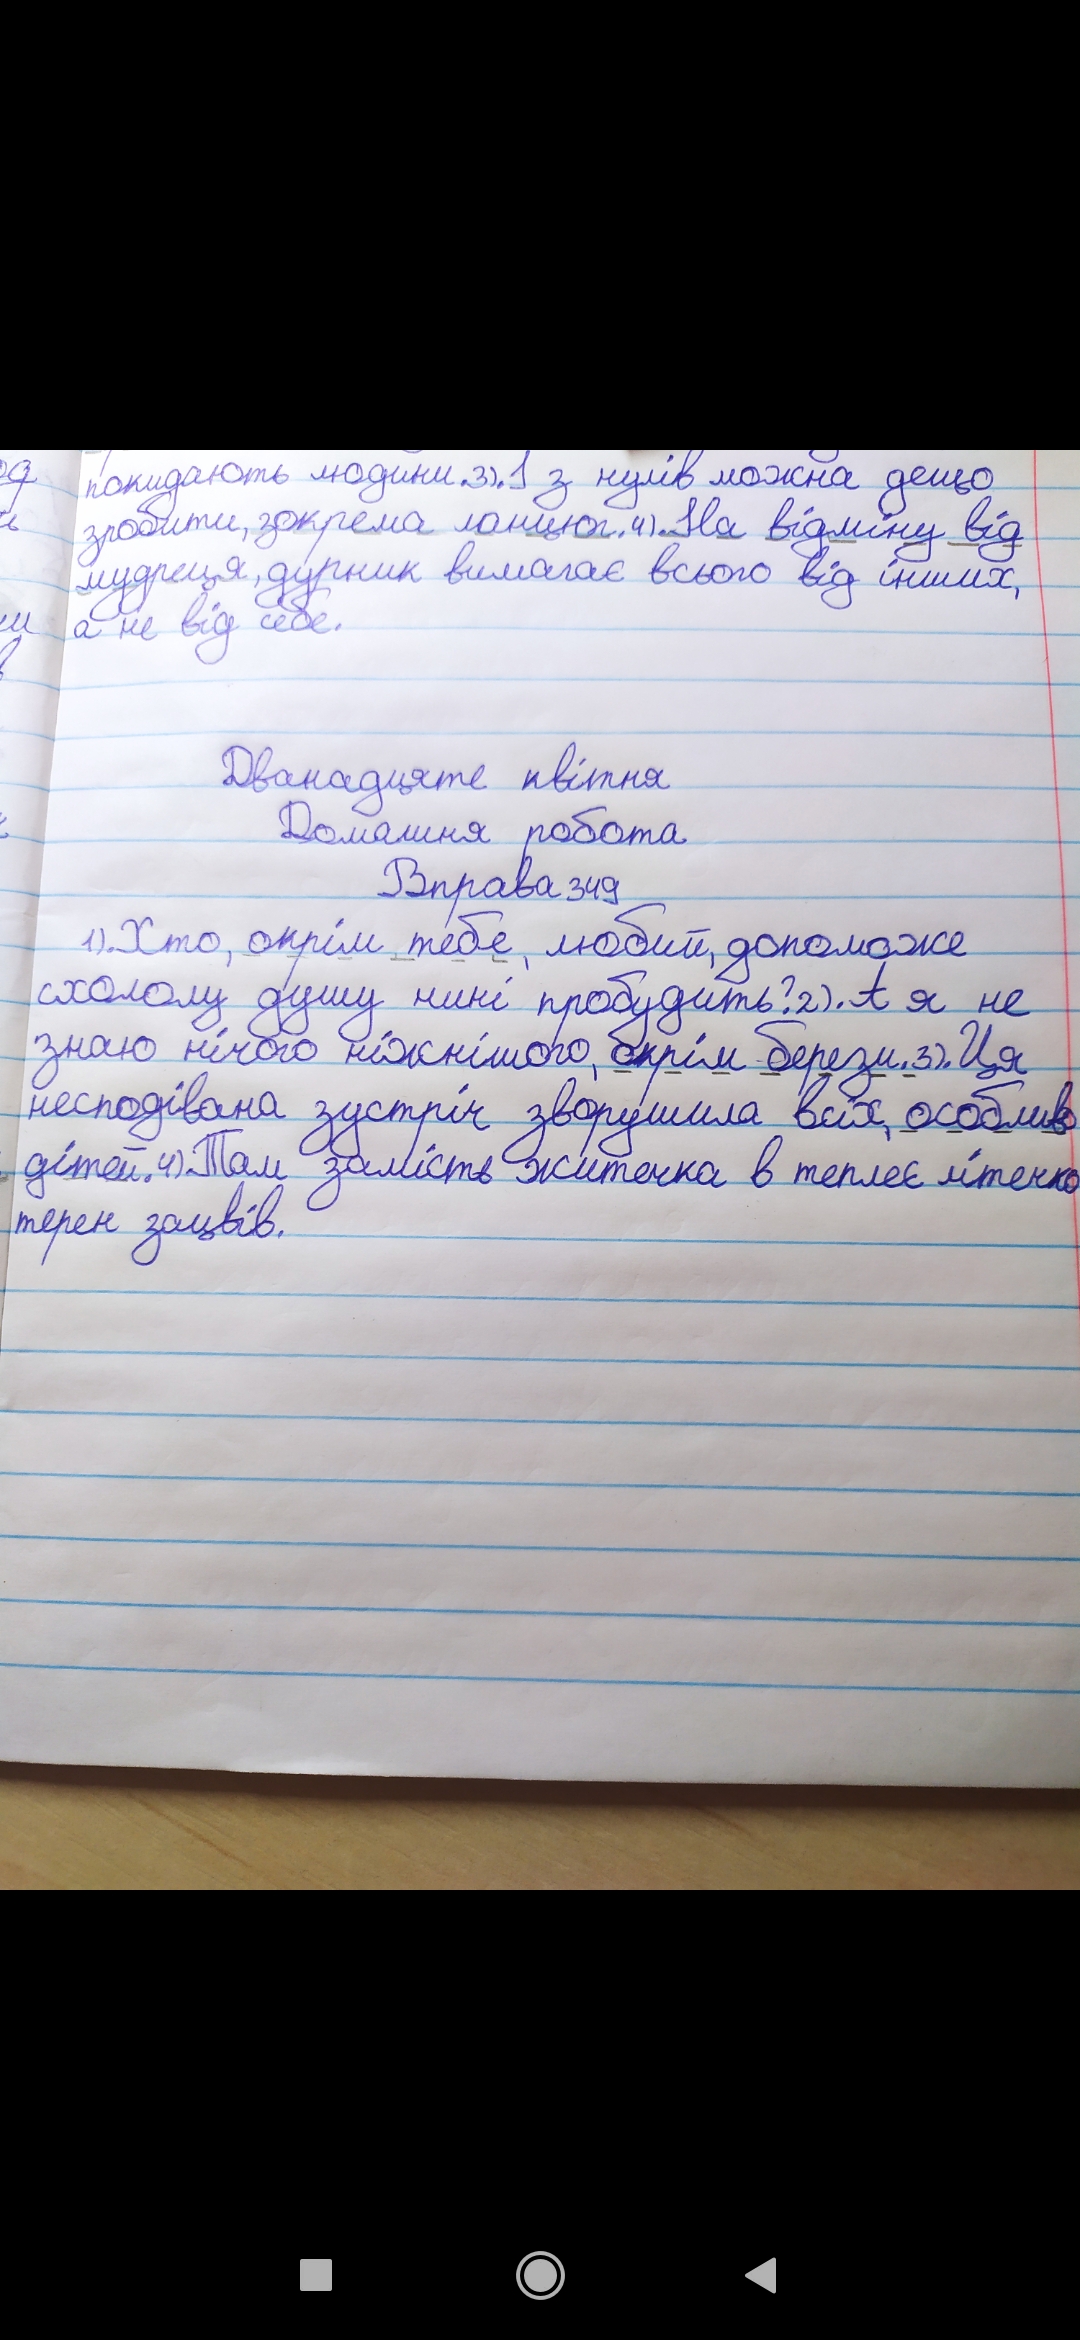 покидають людини.3).І з нулів можна дещо
зробити, зокрема ланцюг.4).На відміну від
мудреця, дурник вимагає всього від інших,
а не від себе.
Дванадцяте квітня
Домашня робота
Вправа 349
1).Хто, окрім тебе, любий, допоможе
схололу душу нині пробудить?2).А я не
знаю нічого ніжнішого, окрім берези.3).Ця
несподівана зустріч зворушила всіх, особливо
дітей.4).Там замість житечка в теплеє літечко
терен зацвів.